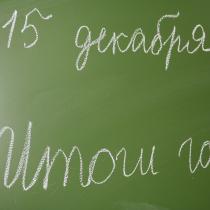 15 декабря
Итоги го